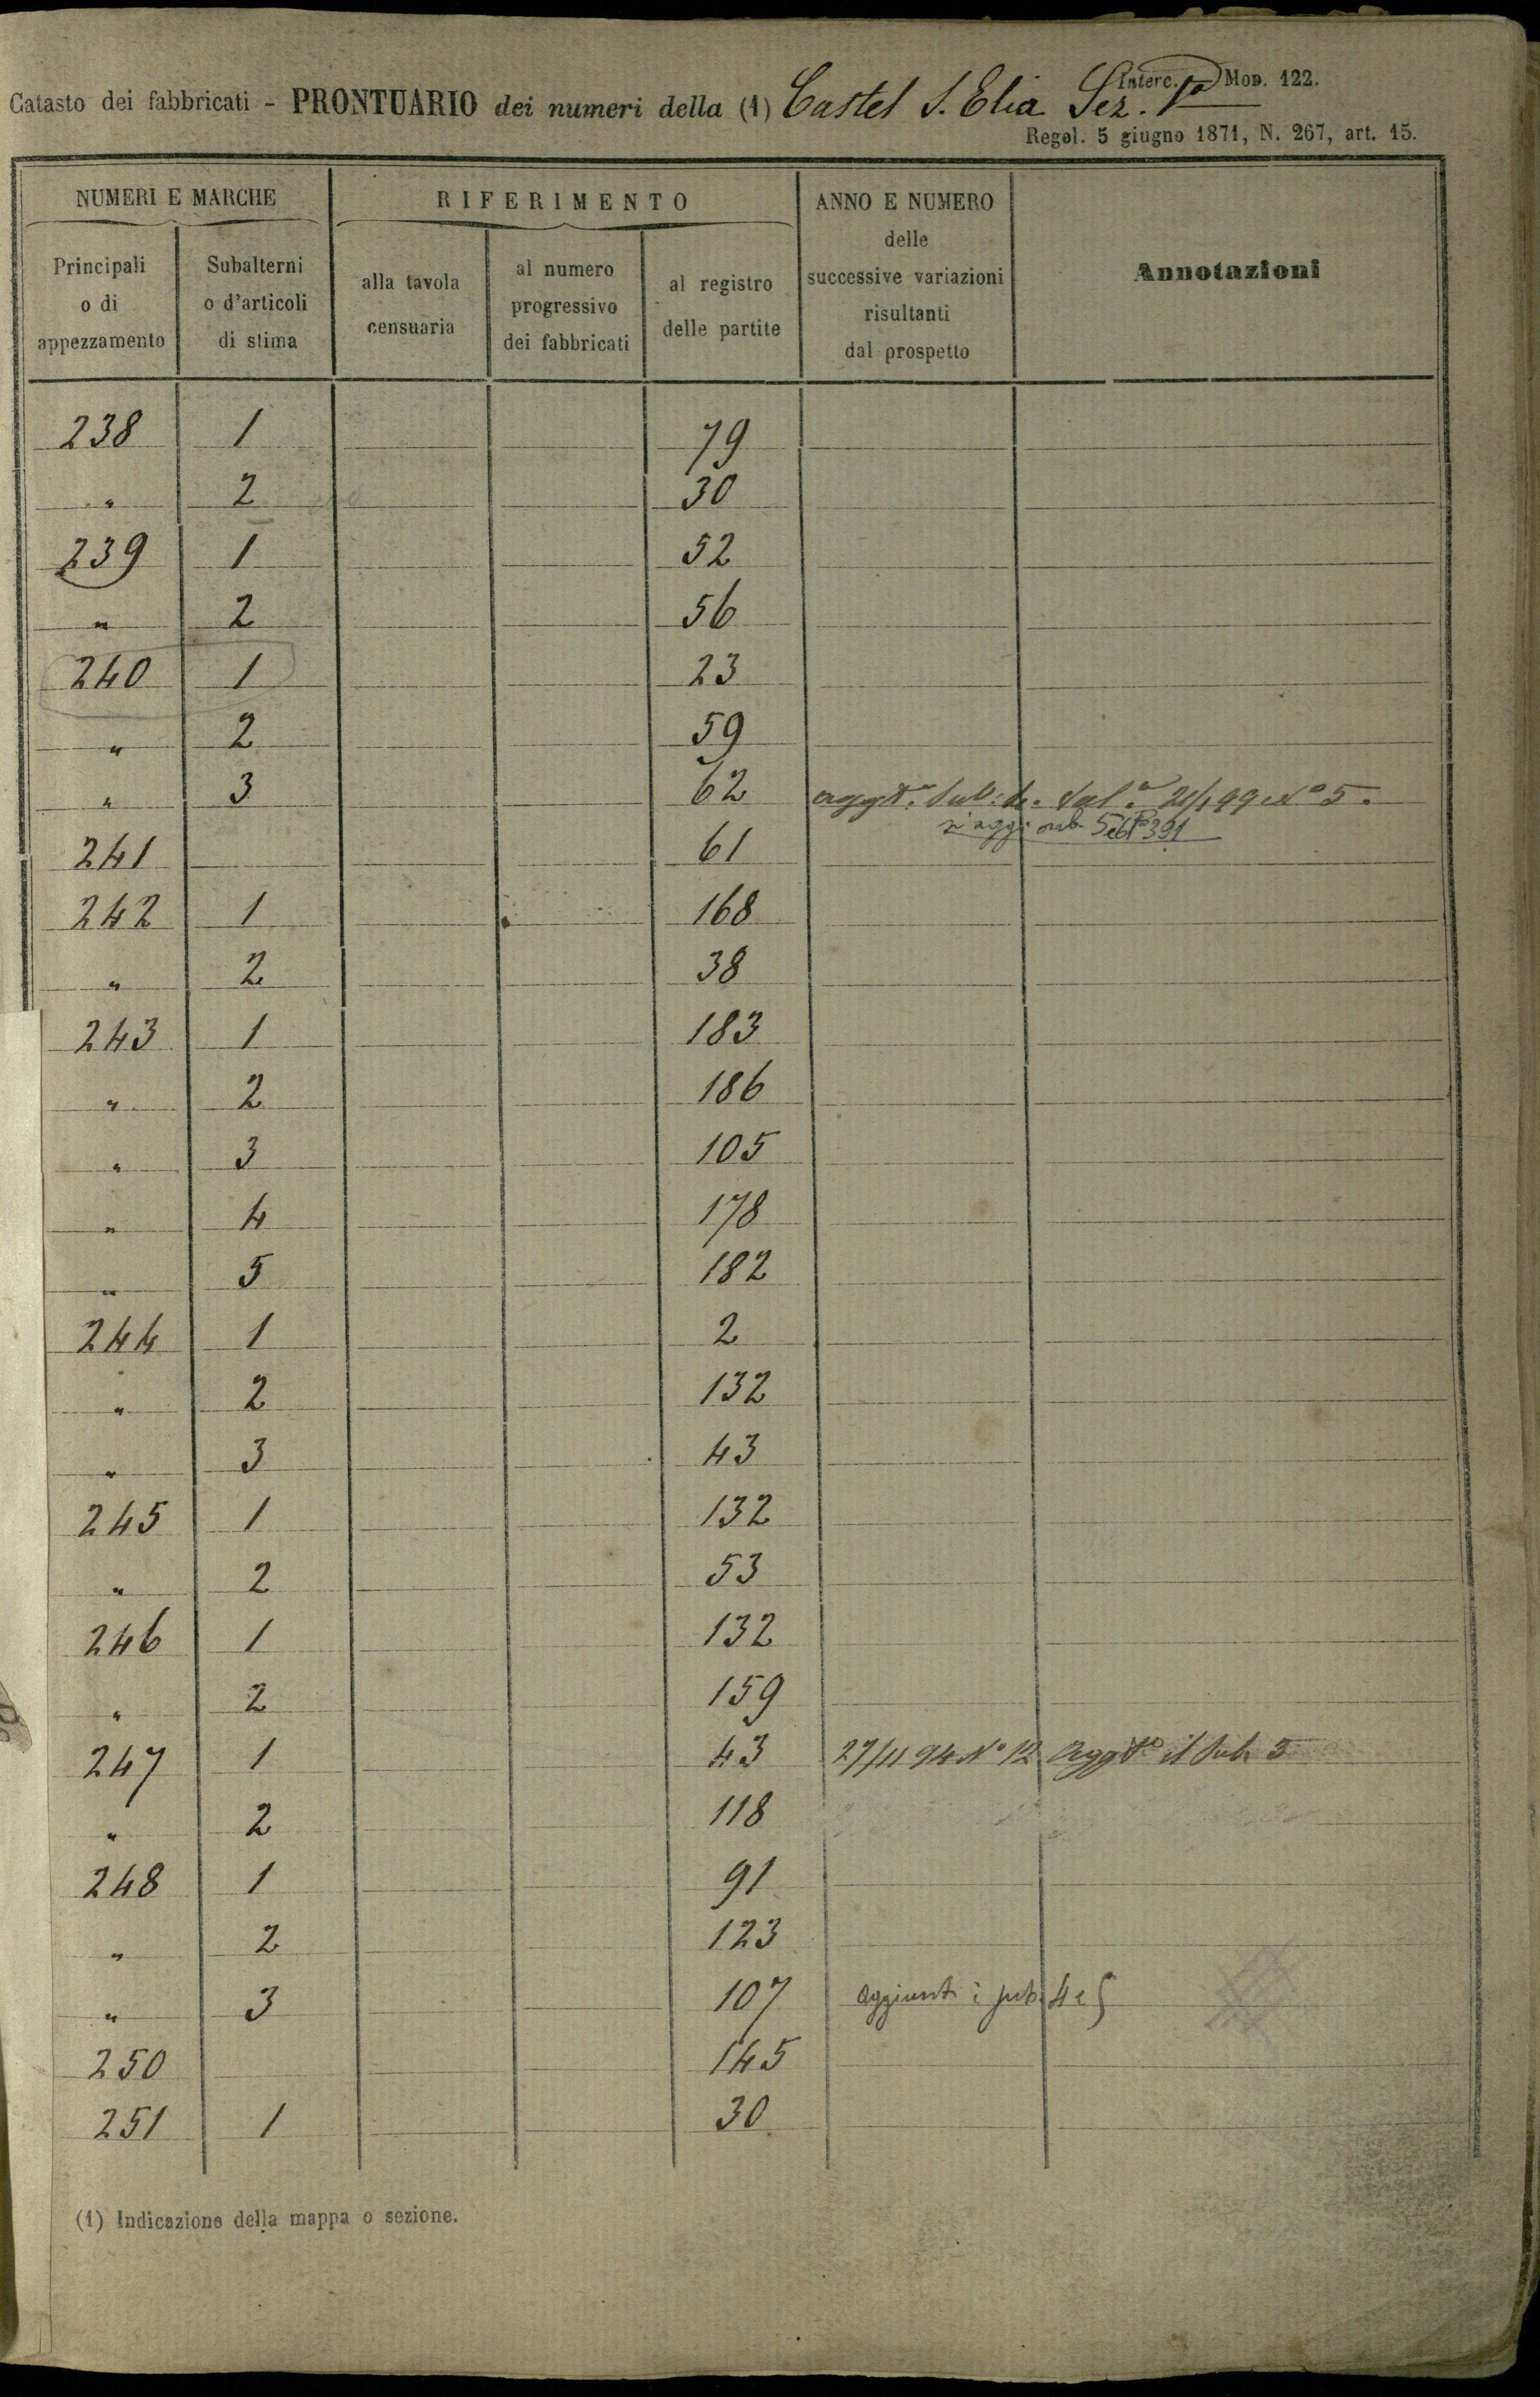 Interc. Mod. 122.
Catasto dei fabbricati - PRONTUARIO dei numeri della (1) Castel S. Elia Sez. 1a
Regol. 5 giugno 1871, N. 267, art. 15.
NUMERI E MARCHE RIFERIMENTO ANNO E NUMERO delle successive variazioni risultanti dal prospetto Annotazioni
Principali o di appezzamento Subalterni o d'articoli di stima alla tavola censuaria al numero progressivo dei fabbricati al registro delle partite
238 1 79
" 2 30
239 1 52
" 2 56
240 1 23
" 2 59
" 3 62 aggto. Sub: 4. 99 No 5.
si aggi sub 5 e 6 Pa 391
241 61
242 1 168
" 2 38
243 1 183
" 2 186
" 3 105
" 4 178
" 5 182
244 1 2
" 2 132
" 3 43
245 1 132
" 2 53
246 1 132
" 2 159
247 1 43 27/11 94 No 12 Aggto il Sub. 3
" 2 118
248 1 91
" 2 123
" 3 107 aggiunti i sub. 4 e 5
250 145
251 1 30
(1) Indicazione della mappa o sezione.